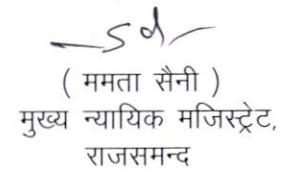 Sd/-
( ममता सैनी )
मुख्य न्यायिक मजिस्ट्रेट,
राजसमन्द